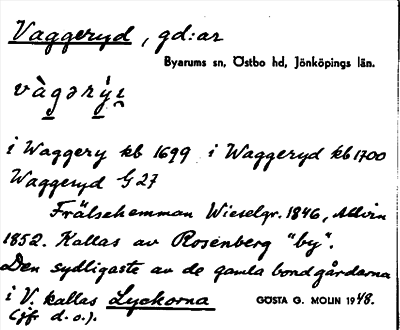 Vaggeryd, gd:ar
Byarums sn, Östbo hd, Jönköpings län.
i Waggery kb 1699 i Waggeryd kb 1700
Waggeryd G 27
Frälsehemman Wieselgr. 1846, Allvin
1852. Kallas av Rosenberg "by".
Den sydligaste av de gamla bondgårdarna
i V. kallas Lyckorna
GÖSTA G. MOLIN 1948.
(jfr d.o.).